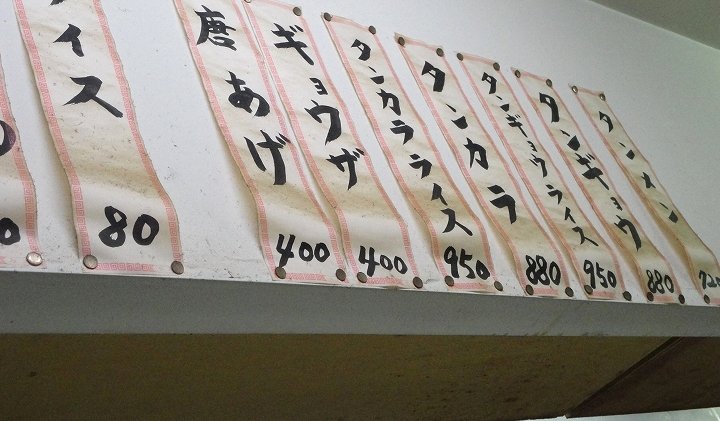 タンメン
720
タンギョウ
880
タンギョウライス
950
タンカラ
880
タンカラライス
950
ギョウザ
400
唐あげ
400
イス
80